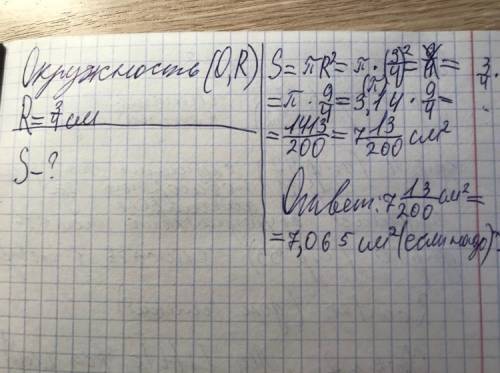 Окружность (O, R)
R = 3/4 см
S - ?
S = πR² = π · (3/4)² =
= π · 9/4 = 3,14 · 9/4 =
= 1413/200 = 7 13/200 см²
Ответ: 7 13/200 см² =
= 7,065 см² (если надо)
3/4 .